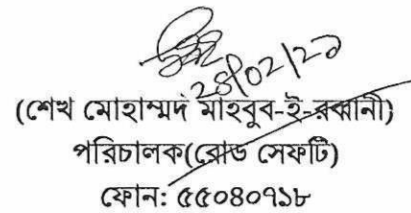 (শেখ মোহাম্মদ মাহবুব-ই-রব্বানী)
পরিচালক(রোড সেফটি)
ফোন: ৫৫০৪০৭১৮